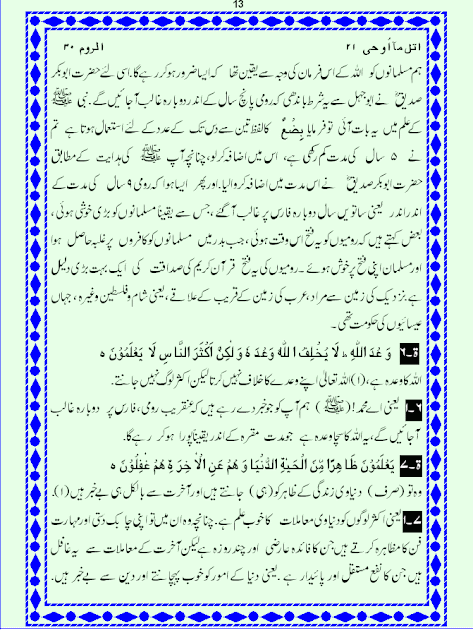 13
اتل مآاُوحی ۲۱ الروم ۳۰
ہم مسلمانوں کو اللہ کے اس فرمان کی وجہ سے یقین تھا کہ ایسا ضرور ہو کر رہے گا۔ اسی لئے حضرت ابوبکر
صدیقؓ نے ابو جہل سے یہ شرط باندھی کہ رومی پانچ سال کے اندر دوبارہ غالب آجائیں گے۔ نبی ﷺ
کے علم میں یہ بات آئی تو فرمایا بِضْعٌ کا لفظ تین سے دس تک کے عدد کے لئے استعمال ہوتا ہے تم
نے ۵ سال کی مدت کم رکھی ہے، اس میں اضافہ کر لو، چنانچہ آپ ﷺ کی ہدایت کے مطابق
حضرت ابوبکر صدیقؓ نے اس مدت میں اضافہ کروا لیا۔ اور پھر ایسا ہوا کہ رومی ۹ سال کی مدت کے
اندر اندر یعنی ساتویں سال دوبارہ فارس پر غالب آگئے، جس سے یقیناً مسلمانوں کو بڑی خوشی ہوئی،
بعض کہتے ہیں کہ رومیوں کو یہ فتح اس وقت ہوئی، جب بدر میں مسلمانوں کو کافروں پر غلبہ حاصل ہوا
اور مسلمان اپنی فتح پر خوش ہوئے۔ رومیوں کی یہ فتح قرآن کریم کی صداقت کی ایک بہت بڑی دلیل
ہے، نزدیک کی زمین سے مراد، عرب کی زمین کے قریب کے علاقے، یعنی شام و فلسطین وغیرہ، جہاں
عیسائیوں کی حکومت تھی۔
ۃ۔۶ وَعْدَ اللّٰهِ ط لَا يُخْلِفُ اللّٰهُ وَعْدَهٗ وَلٰكِنَّ اَكْثَرَ النَّاسِ لَا يَعْلَمُوْنَ ه
اللہ کا وعدہ ہے، (۱) اللہ تعالیٰ اپنے وعدے کا خلاف نہیں کرتا لیکن اکثر لوگ نہیں جانتے۔
۶۔۱ یعنی اے محمد! (ﷺ) ہم آپ کو جو خبر دے رہے ہیں کہ عنقریب رومی، فارس پر دوبارہ غالب
آجائیں گے، یہ اللہ کا سچا وعدہ ہے جو مدت مقررہ کے اندر یقیناً پورا ہو کر رہے گا۔
ۃ۔۷ يَعْلَمُوْنَ ظَاهِرًا مِّنَ الْحَيٰوةِ الدُّنْيَا وَهُمْ عَنِ الْاٰخِرَةِ هُمْ غٰفِلُوْنَ ه
وہ تو (صرف) دنیاوی زندگی کے ظاہر کو (ہی) جانتے ہیں اور آخرت سے بالکل ہی بے خبر ہیں (۱)۔
۷۔۱ یعنی اکثر لوگوں کو دنیاوی معاملات کا خوب علم ہے۔ چنانچہ وہ ان میں تو اپنی چابک دستی اور مہارت
فن کا مظاہرہ کرتے ہیں جن کا فائدہ عارضی اور چند روزہ ہے لیکن آخرت کے معاملات سے یہ غافل
ہیں جن کا نفع مستقل اور پائیدار ہے۔ یعنی دنیا کے امور کو خوب پہچانتے اور دین سے بے خبر ہیں۔